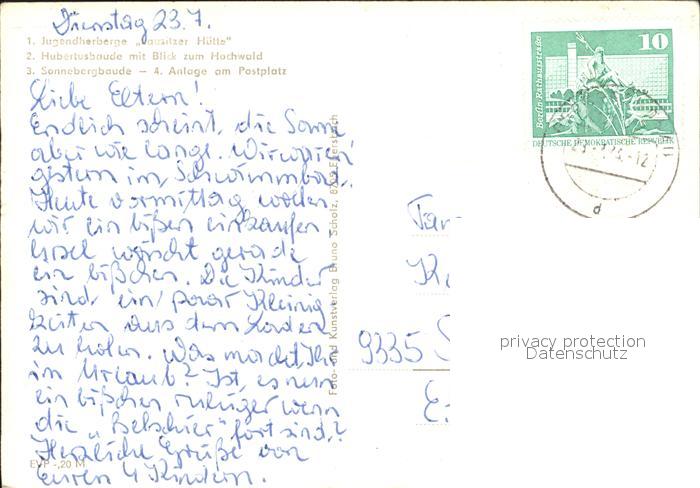 Dienstag 23.7.
1. Jugendherberge „Lausitzer Hütte"
2. Hubertusbaude mit Blick zum Hochwald
3. Sonnebergbaude — 4. Anlage am Postplatz
Liebe Eltern!
Endlich scheint, die Sonne
aber wie lange. Wir waren
gestern im Schwimmbad.
Heute vormittag wollen
wir ein bißen einkaufen,
wäscht gerade
ein bißchen. Die Kinder
sind ein paar Kleinig
keiten aus dem Laden
zu holen. Was macht Ihr
im Urlaub? Ist, es nun
ein bißchen ruhiger wenn
die „ " fort sind?
Herzliche Grüße von
Euren 4 Kindern.
EVP -,20 M
Foto- und Kunstverlag Bruno Scholz, 8709 Ebersbach
10
Berlin·Rathausstraße
DEUTSCHE DEMOKRATISCHE REPUBLIK
d
Fam
9335
privacy protection
Datenschutz